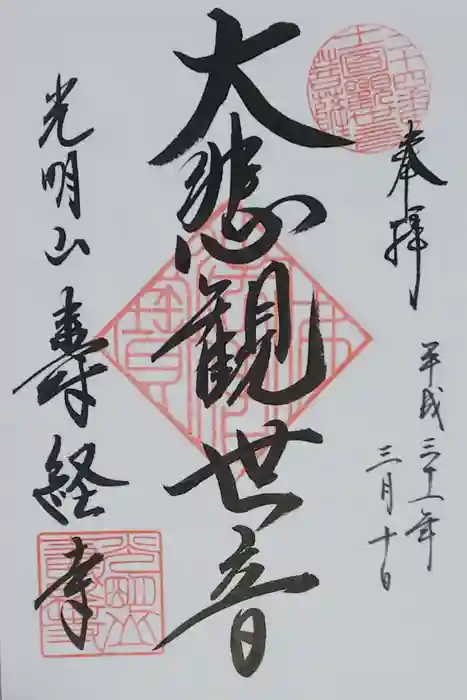 奉拝
平成三十一年
三月十日
大悲観世音
光明山 壽経寺